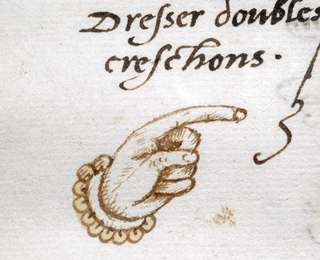 Dresser doubles
creschons.